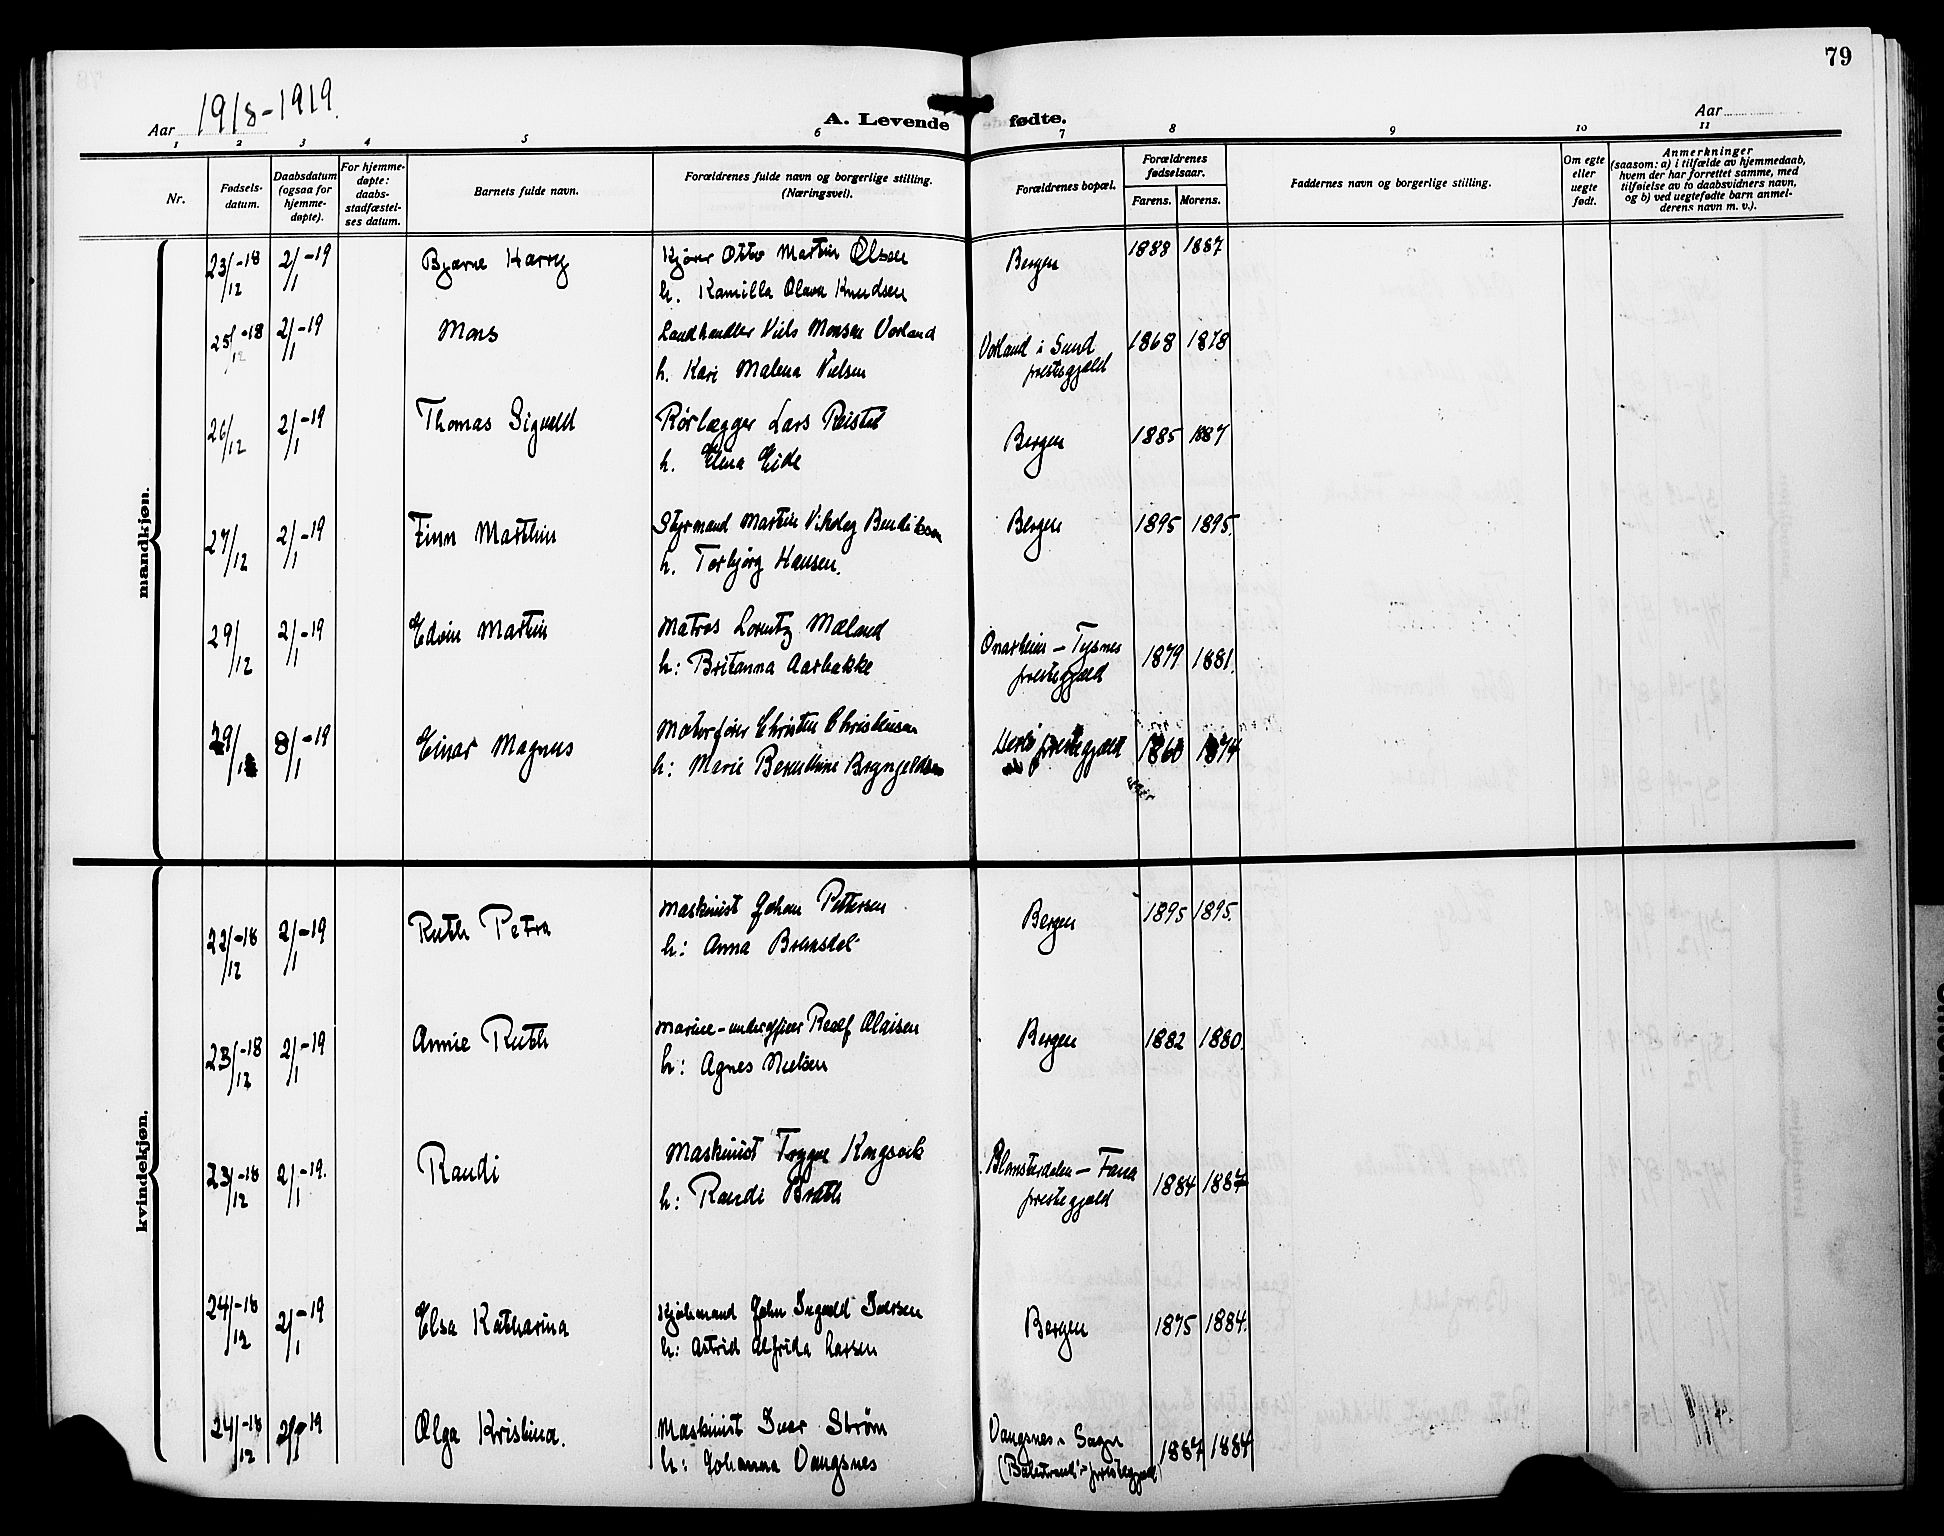 79
Aar 1918-1919.
A. Levende fødte.
Aar
1 2 3 4 5 6 7 8 9 10 11
Nr.
Fødsels-
datum.
Daabsdatum
(ogsaa for
hjemme-
døpte).
For hjemme-
døpte:
daabs-
stadfæstel-
ses datum.
Barnets fulde navn.
Forældrenes fulde navn og borgerlige stilling.
(Næringsvei).
Forældrenes bopæl.
Forældrenes
fødselsaar.
Farens. Morens.
Faddernes navn og borgerlige stilling.
Om egte
eller
uegte
født.
Anmerkninger
(saasom: a) i tilfælde av hjemmedaab,
hvem der har forrettet samme, med
tilføielse av to daabsvidners navn,
og b) ved uegtefødte barn anmel-
derens navn m. v.).
mandkjøn.
23/12-18 2/1-19 Bjarne Harry Kjører Otto Martin Olsen Bergen 1888 1887
h. Kamilla Olava Knudsen
25/12-18 2/1-19 Mons Landhandler Niels Monsen Vorland Vorland i Sund 1868 1878
h. Kari Malena Nielsen prestegjæld
26/12 2/1-19 Thomas Sigvald Rørlægger Lars Reistad Bergen 1885 1887
h. Elina Eide
27/12 2/1-19 Finn Marthin Styrmand Martin Nikolay Bendiksen Bergen 1895 1895.
h. Torbjørg Hansen.
29/12 2/1-19 Edvin Martin Matros Lorentz Mæland Onarheim - Tysnes 1879 1881.
h: Britanna Aarbakke prestegjæld
29/12 8/1-19 Einar Magnus Motorfører Christen Christensen Herlø prestegjæld 1860 1874
h: Marie Berenthine Brynjeldsen
kvindekjøn.
22/12-18 2/1-19 Ruth Petra Maskinist Johan Pettersen Bergen 1895 1895.
h: Anna Bransdal
23/12-18 2/1-19 Annie Ruth Marine-underofficer Rolf Olaisen Bergen 1882 1880.
h: Agnes Nielsen
23/12-18 2/1-19. Randi Maskinist Trygve Kongsvik Blomsterdalen - Fana 1884 1887
h: Randi Brath prestegjæld
24/12-18 2/1-19 Elsa Katharina Kjøbmand John Ingvald Iversen Bergen 1875 1884.
h: Astrid Alfrida Larsen
24/12-18 2/1-19 Olga Kristina. Maskinist Ivar Strøm Vangsnes i Sogn 1887 1884
h: Johanna Vangsnes (Balestrand prestegjæld)